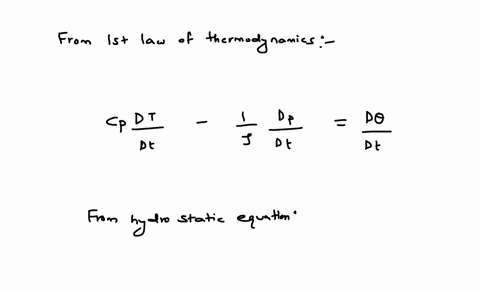 From 1st law of thermodynamics:-
Cp DT/Dt - 1/ρ Dp/Dt = Dθ/Dt
From hydro static equation: